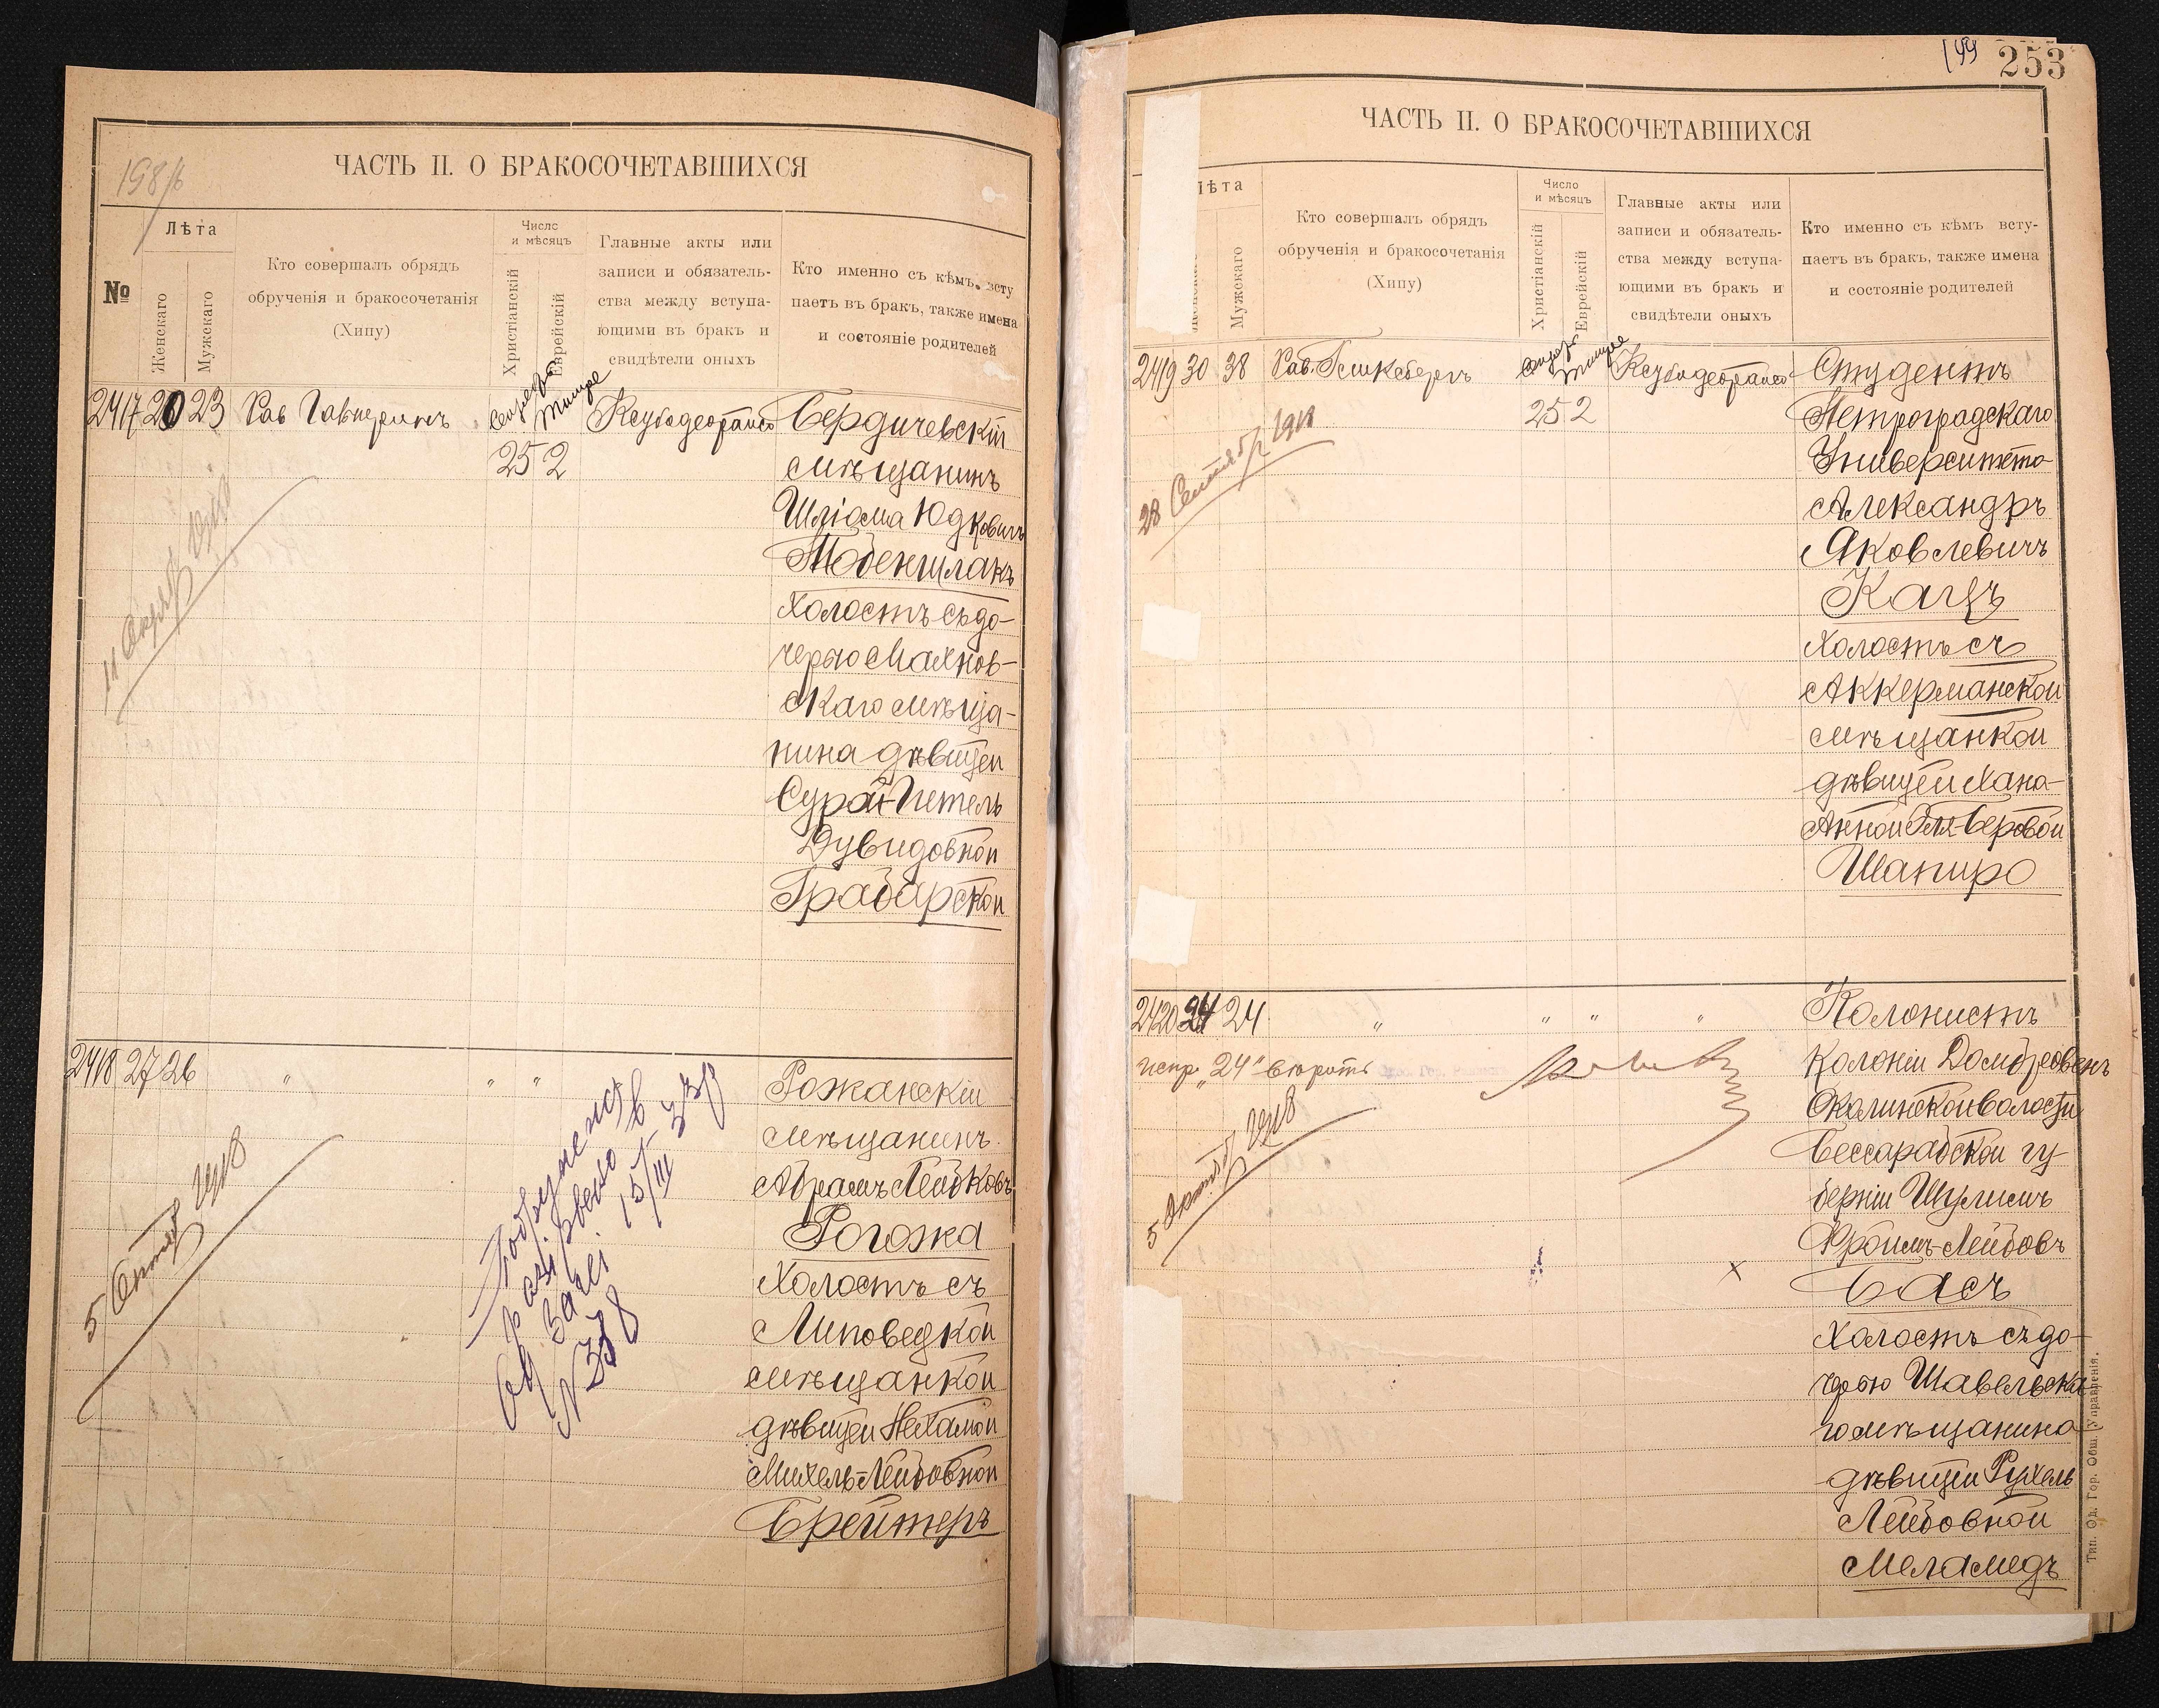 198/б
ЧАСТЬ II. О БРАКОСОЧЕТАВШИХСЯ
№
Лѣта
Женскаго
Мужскаго
Кто совершалъ обрядъ
обрученія и бракосочетанія
(Хипу)
Число
и мѣсяцъ
Христіанскій
Еврейскій
Главные акты или
записи и обязатель-
ства между вступа-
ющими въ бракъ и
свидѣтели оныхъ
Кто именно съ кѣмъ всту
паетъ въ бракъ, также имена
и состояніе родителей
2417 20 23
Тишре
25 2
Бердичевскій
мѣщанинъ
Шліома Юдковичъ
Тобеншлакъ
холостъ съ до-
черью Махнов-
скаго мѣща-
нина дѣвицей
Сурой-Гитель
Дувидовной
Грабарской
2418 27 26 " " "
5 Октяб 1918
15/III
N 338
Рожанскій
мѣщанинъ
Абрамъ Лейбковъ
Рогожа
холостъ съ
Липовецкой
мѣщанкой
дѣвицей Нехамой
Михель-Лейбовной
Брейтеръ
199 253
ЧАСТЬ II. О БРАКОСОЧЕТАВШИХСЯ
Лѣта
Женскаго
Мужскаго
Кто совершалъ обрядъ
обрученія и бракосочетанія
(Хипу)
Число
и мѣсяцъ
Христіанскій
Еврейскій
Главные акты или
записи и обязатель-
ства между вступа-
ющими въ бракъ и
свидѣтели оныхъ
Кто именно съ кѣмъ всту-
паетъ въ бракъ, также имена
и состояніе родителей
2419 30 38
Тишре
25 2
28 Сентябр 1918
Студентъ
Петроградскаго
Университета
Александръ
Яковлевичъ
Кацъ
холостъ съ
Аккерманской
мѣщанкой
дѣвицей Хана-
Анной Эля-Беровой
Шапиро
2420 24 24 " " " "
испр. "24" вѣрить
5 Октяб 1918
Колонистъ
колоніи Домбровенъ
Околинской волости
Бессарабской гу-
берніи Шулимъ
Фроимъ-Лейбовъ
Басъ
холостъ съ до-
черью Шавельска-
го мѣщанина
дѣвицей Рухель
Лейбовной
Меламедъ
Тип. Од. Гор. Общ. Управленія.